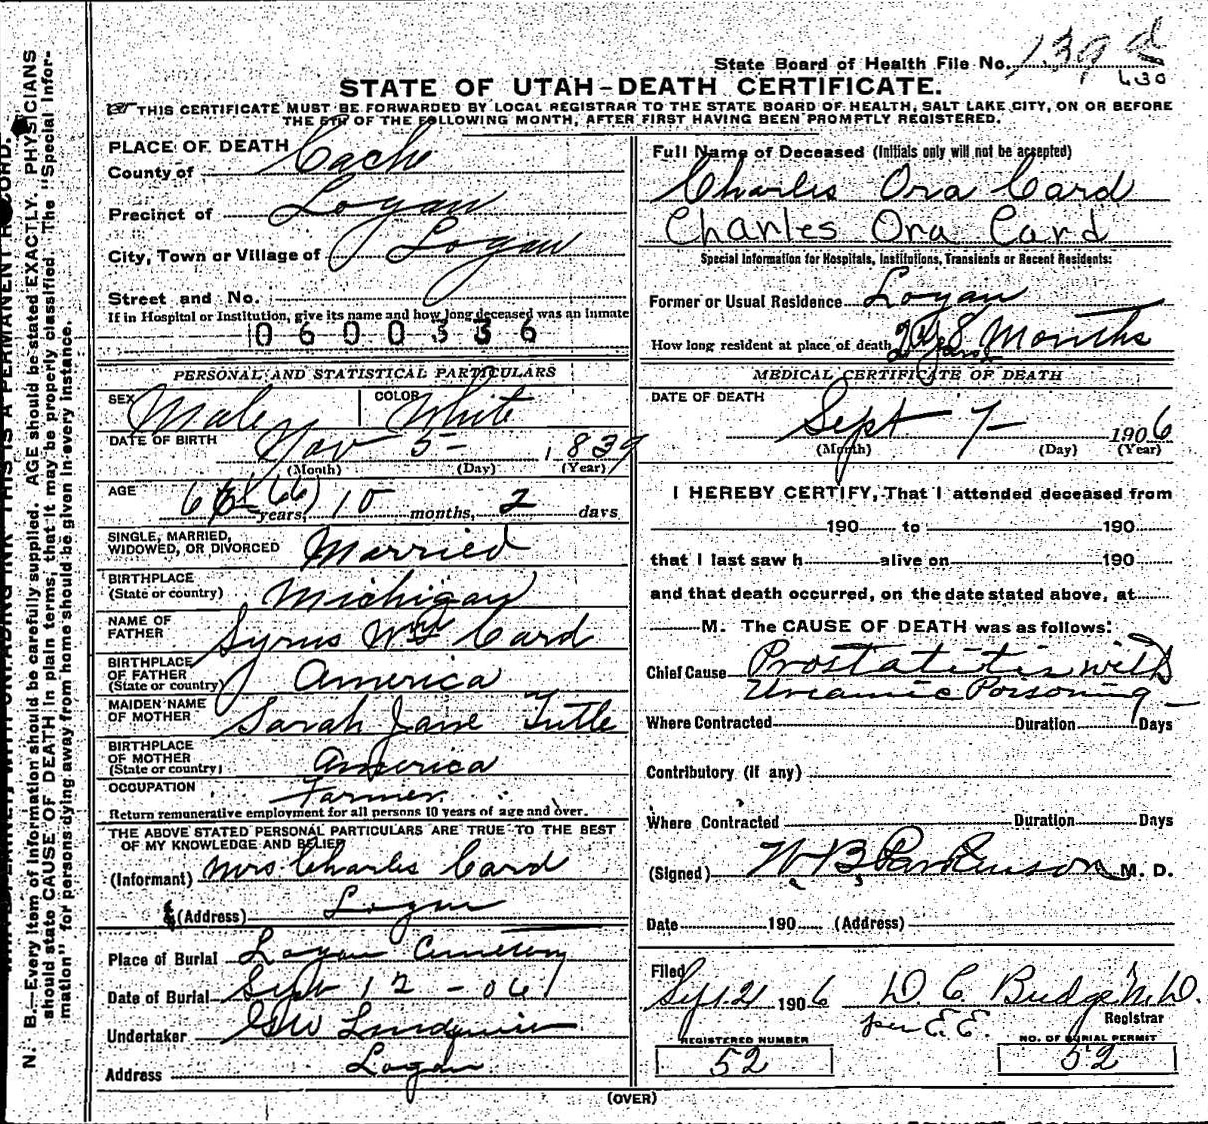 State Board of Health File No. 139 d
430
STATE OF UTAH-DEATH CERTIFICATE.
THIS CERTIFICATE MUST BE FORWARDED BY LOCAL REGISTRAR TO THE STATE BOARD OF HEALTH, SALT LAKE CITY, ON OR BEFORE
THE 5TH OF THE FOLLOWING MONTH, AFTER FIRST HAVING BEEN PROMPTLY REGISTERED.
PLACE OF DEATH
County of Cache
Precinct of Logan
City, Town or Village of Logan
Street and No.
If in Hospital or Institution, give its name and how long deceased was an Inmate
0600336
PERSONAL AND STATISTICAL PARTICULARS
SEX Male COLOR White
DATE OF BIRTH Nov 5 1839
(Month) (Day) (Year)
AGE (66) years, 10 months, 2 days
SINGLE, MARRIED,
WIDOWED, OR DIVORCED Married
BIRTHPLACE
(State or country) Michigan
NAME OF
FATHER Syrus Wm Card
BIRTHPLACE
OF FATHER
(State or country) America
MAIDEN NAME
OF MOTHER Sarah Jane Tutle
BIRTHPLACE
OF MOTHER
(State or country) America
OCCUPATION Farmer
Return remunerative employment for all persons 10 years of age and over.
THE ABOVE STATED PERSONAL PARTICULARS ARE TRUE TO THE BEST
OF MY KNOWLEDGE AND BELIEF
(Informant) Mrs. Charles Card
(Address) Logan
Place of Burial Logan Cemetery
Date of Burial Sept 12 - 06
Undertaker
Address Logan
Full Name of Deceased (Initials only will not be accepted)
Charles Ora Card
Charles Ora Card
Special Information for Hospitals, Institutions, Transients or Recent Residents:
Former or Usual Residence Logan
How long resident at place of death 8 Months
MEDICAL CERTIFICATE OF DEATH
DATE OF DEATH
Sept 7 1906
(Month) (Day) (Year)
I HEREBY CERTIFY, That I attended deceased from
190 to 190
that I last saw h alive on 190
and that death occurred, on the date stated above, at
M. The CAUSE OF DEATH was as follows:
Chief Cause Prostatitis with
Ureamic Poisoning
Where Contracted Duration Days
Contributory (if any)
Where Contracted Duration Days
(Signed) W B Parkinson M. D.
Date 190 (Address)
Filed
1906 D C Budge M.D.
per E.E. Registrar
REGISTERED NUMBER
52
NO. OF BURIAL PERMIT
52
(OVER)
N. B.—Every item of information should be carefully supplied. AGE should be stated EXACTLY. PHYSICIANS
should state CAUSE OF DEATH in plain terms, that it may be properly classified. The "Special Infor-
mation" for persons dying away from home should be given in every instance.